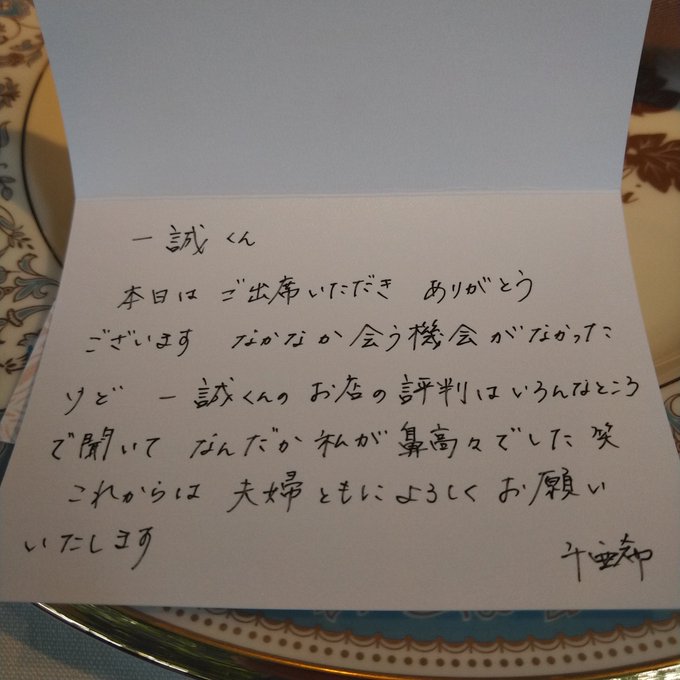 一誠くん
本日は ご出席いただき ありがとう
ございます なかなか会う機会がなかった
けど 一誠くんのお店の評判はいろんなところ
で聞いて なんだか私が鼻高々でした 笑
これからは 夫婦ともによろしくお願い
いたします
千亜希